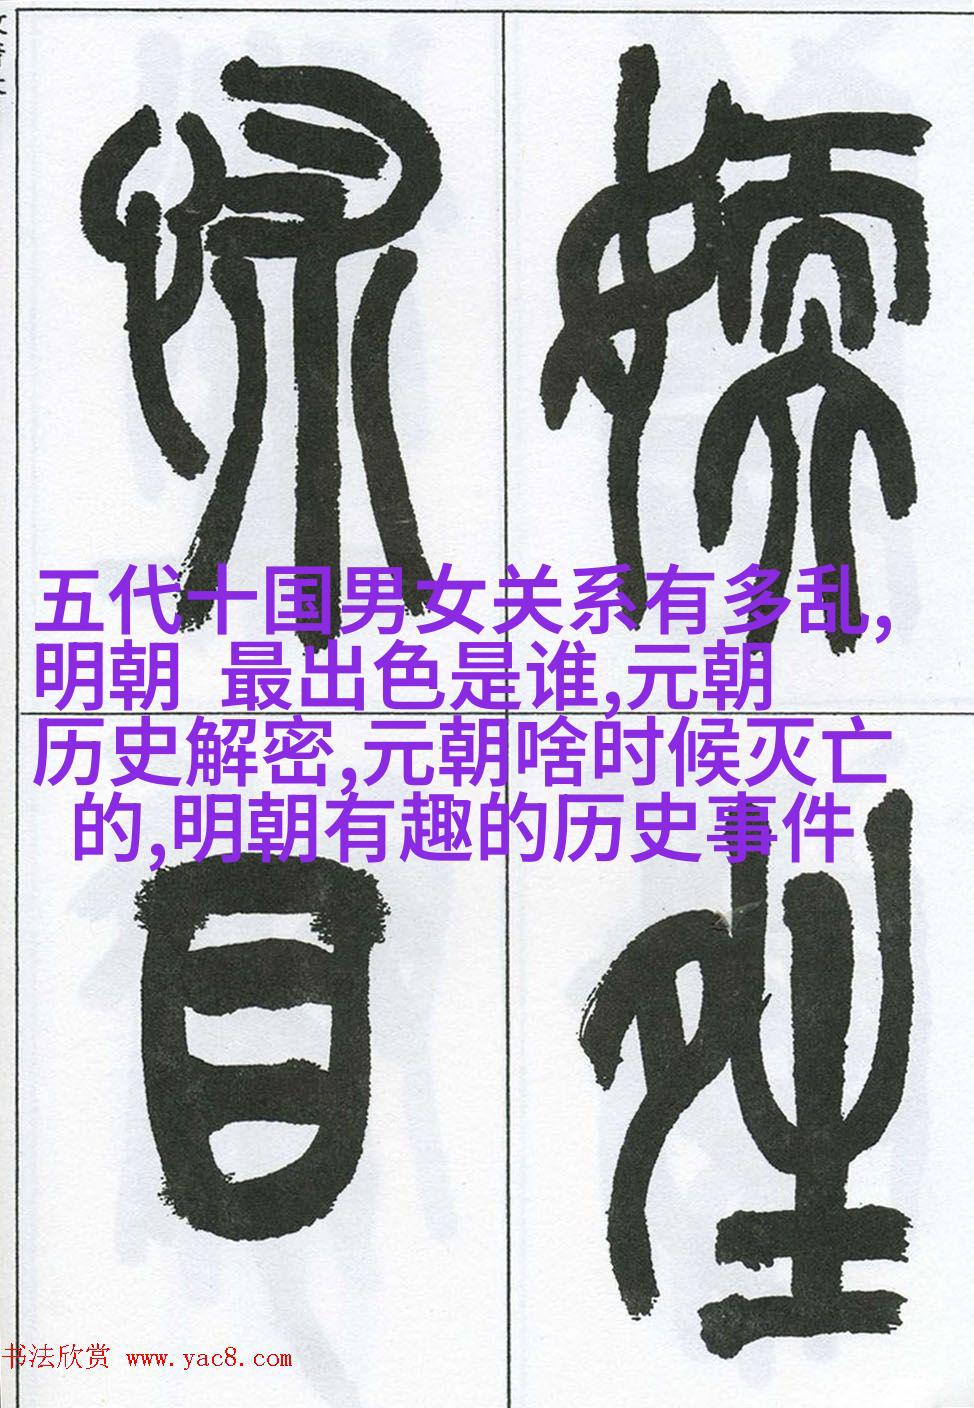 五代十国男女关系有多乱,
明朝 最出色是谁,元朝
历史解密,元朝啥时候灭亡
的,明朝有趣的历史事件
目
书法欣赏 www.yac8.com